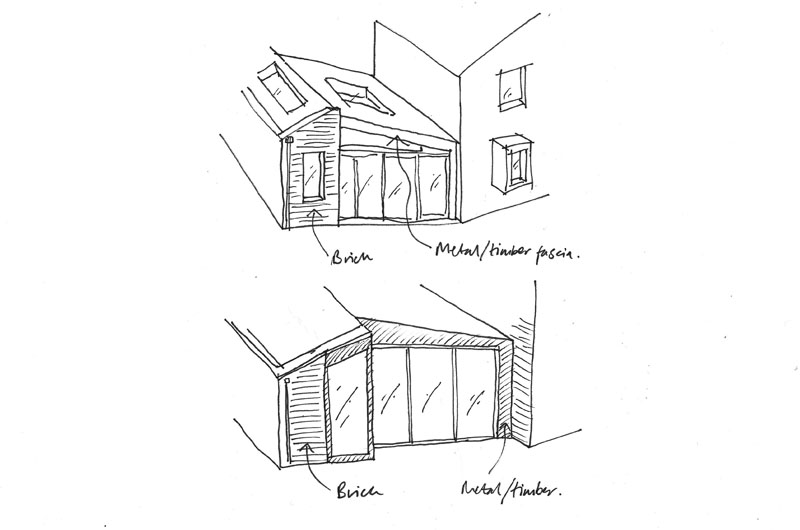 Brick
Metal/timber fascia.
Brick
Metal/timber.